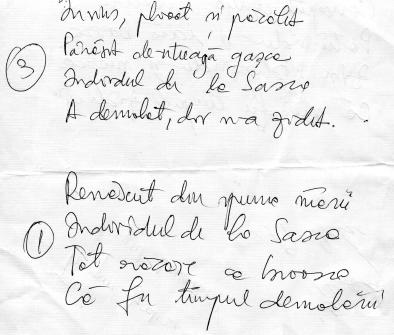 Învins, plouat și pârlit
Părăsit de-ntreagă gașca
③ Individul de la Sasca
A demolat, dar n-a zidit.
Renăscut din spuma mării
① Individul de la Sasca
Tot ca broasca
Că fu timpul demolării